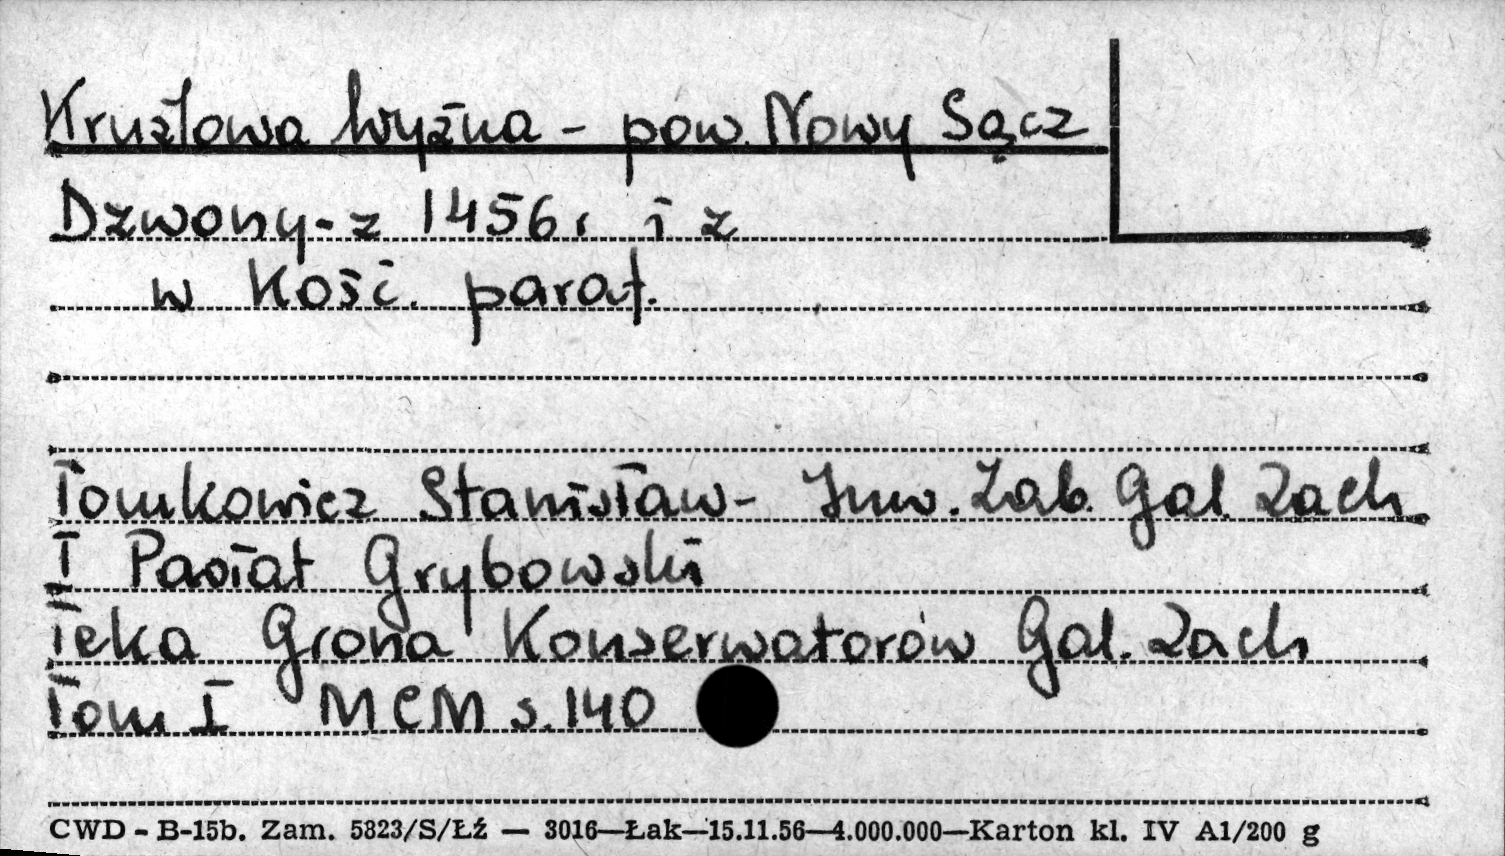 Krużlowa Wyżna - pow. Nowy Sącz
Dzwony - z 1456 r i z
w kość. paraf.
Tomkowicz Stanisław - Inw. Zab. Gal. Zach
I Powiat Grybowski
Teka Grona Konserwatorów Gal. Zach
Tom I MCM s. 140
CWD - B-15b. Zam. 5823/S/Łź — 3016—Łak—15.11.56—4.000.000—Karton kl. IV A1/200 g